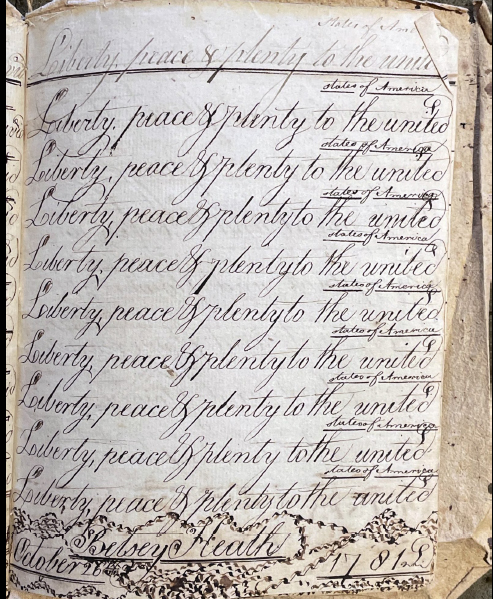 states of Am
Liberty, peace & plenty to the unite
states of America
Liberty, peace & plenty to the united
states of America
Liberty, peace & plenty to the united
states of America
Liberty, peace & plenty to the united
states of America
Liberty, peace & plenty to the united
states of America
Liberty, peace & plenty to the united
states of America
Liberty, peace & plenty to the united
states of America
Liberty, peace & plenty to the united
states of America
Liberty, peace & plenty to the united
states of America
Liberty, peace & plenty to the united
Betsey Heath
October 26th 1781